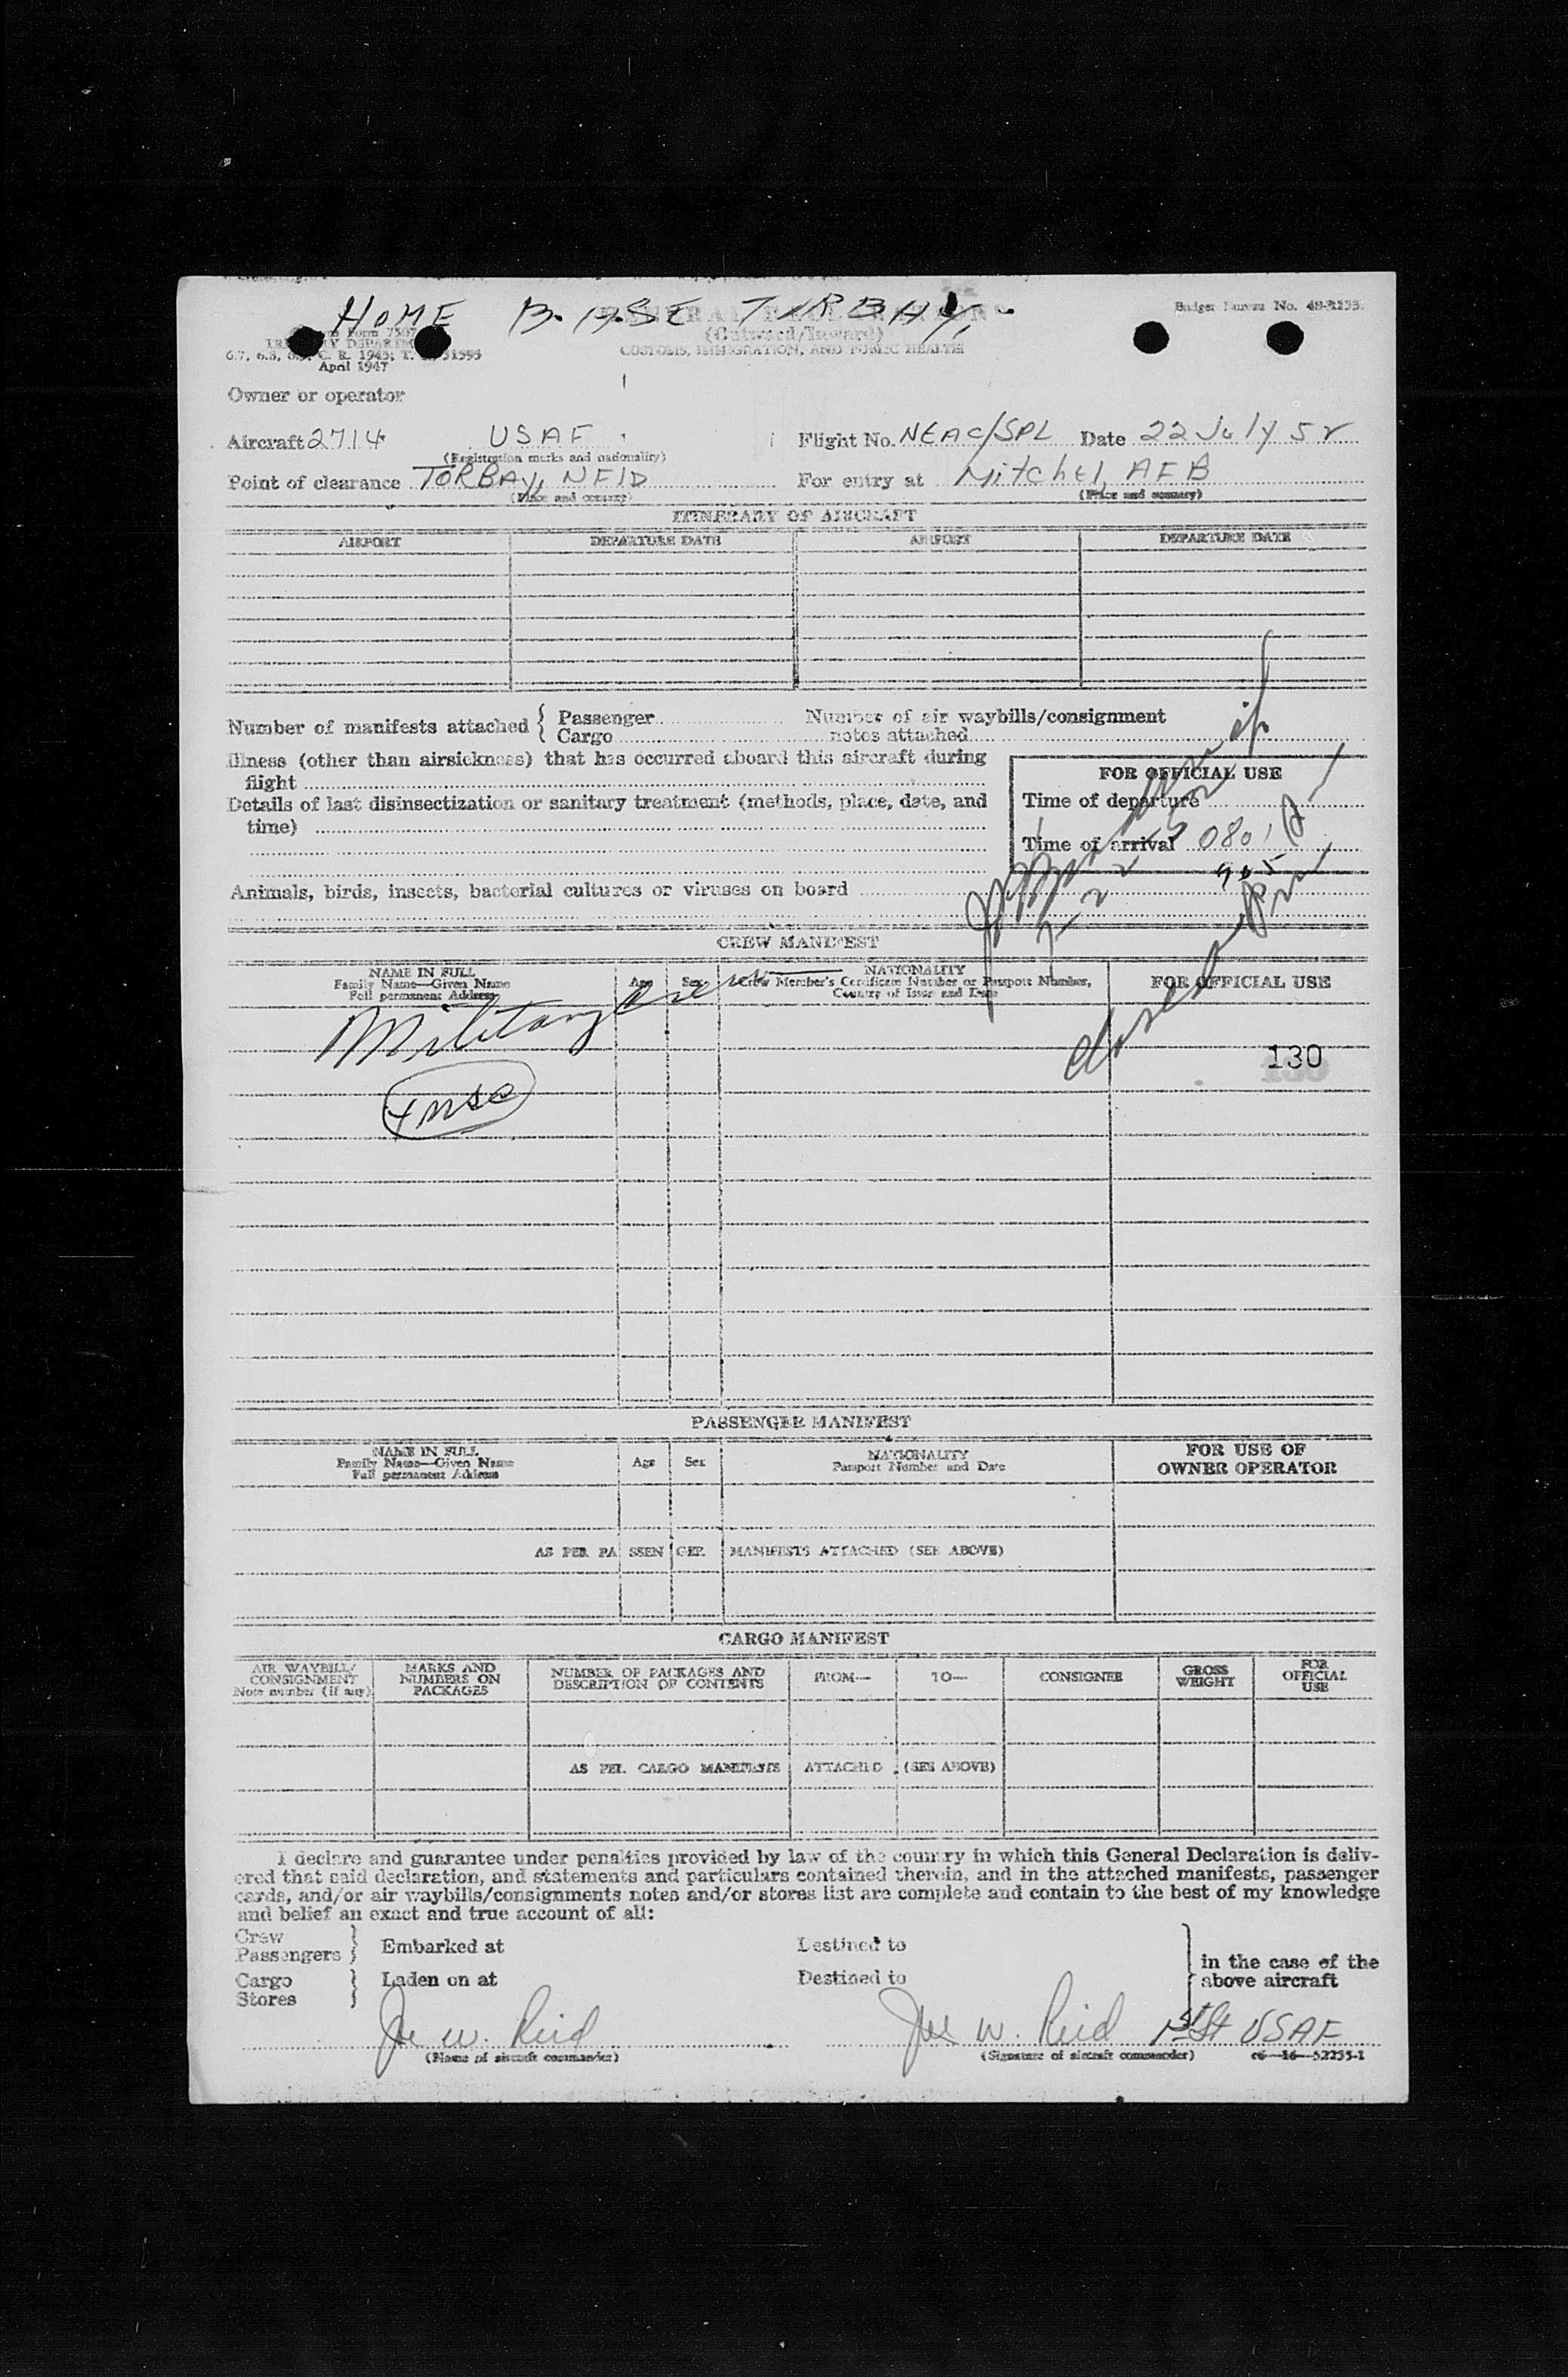 HOME BASE TORBAY,
Budget Bureau No. 48-R133.
Form 7507
(Outward/Inward)
CUSTOMS, IMMIGRATION, AND PUBLIC HEALTH
April 1947
Owner or operator
Aircraft 2714 USAF Flight No. NEAC/SPL Date 22 July 52
(Registration marks and nationality)
Point of clearance TORBAY, NFLD For entry at Mitchel, AFB
(Place and country) (Place and country)
ITINERARY OF AIRCRAFT
AIRPORT DEPARTURE DATE AIRPORT DEPARTURE DATE
Number of manifests attached { Passenger Number of air waybills/consignment
Cargo notes attached
Illness (other than airsickness) that has occurred aboard this aircraft during
flight
FOR OFFICIAL USE
Details of last disinsectization or sanitary treatment (methods, place, date, and
time)
Time of departure
Time of arrival 0801
905
Animals, birds, insects, bacterial cultures or viruses on board
CREW MANIFEST
NAME IN FULL Age Sex NATIONALITY FOR OFFICIAL USE
Family Name—Given Name Crew Member's Certificate Number or Passport Number,
Full permanent Address Country of Issue and Date
Military Crew
130
PASSENGER MANIFEST
NAME IN FULL Age Sex NATIONALITY FOR USE OF
Family Name—Given Name Passport Number and Date OWNER OPERATOR
Full permanent Address
AS PER PASSENGER MANIFESTS ATTACHED (SEE ABOVE)
CARGO MANIFEST
AIR WAYBILL/ MARKS AND NUMBER OF PACKAGES AND FROM— TO— CONSIGNEE GROSS FOR
CONSIGNMENT NUMBERS ON DESCRIPTION OF CONTENTS WEIGHT OFFICIAL
Note number (if any) PACKAGES USE
AS PER CARGO MANIFESTS ATTACHED (SEE ABOVE)
I declare and guarantee under penalties provided by law of the country in which this General Declaration is deliv-
ered that said declaration, and statements and particulars contained therein, and in the attached manifests, passenger
cards, and/or air waybills/consignments notes and/or stores list are complete and contain to the best of my knowledge
and belief an exact and true account of all:
Crew
Passengers } Embarked at Destined to
in the case of the
Cargo } Laden on at Destined to above aircraft
Stores
Joe W. Reid Joe W. Reid 1st Lt USAF
(Name of aircraft commander) (Signature of aircraft commander) c6—16—52233-1